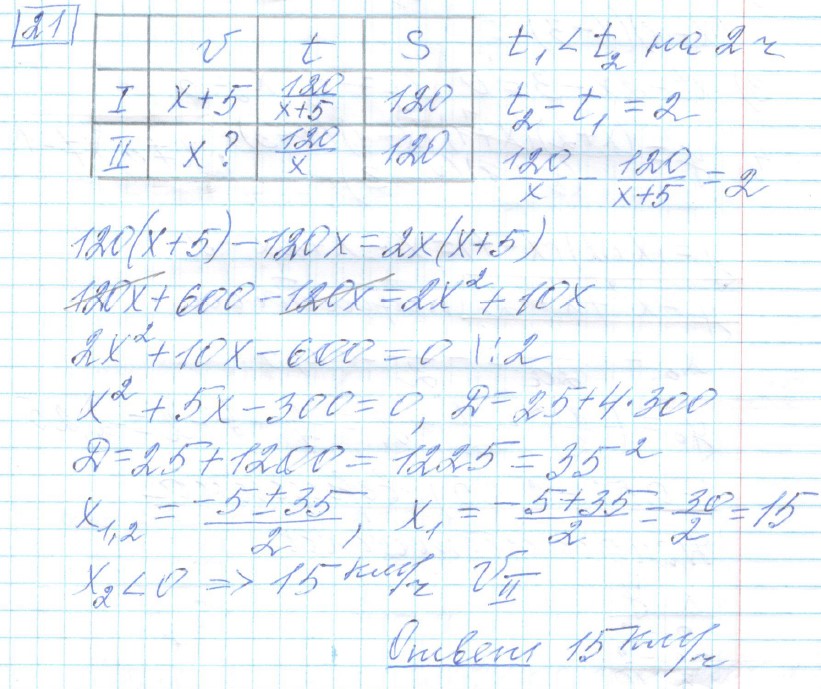 21
v t S
I x+5 120/(x+5) 120
II x? 120/x 120
t₁ < t₂ на 2 ч
t₂ - t₁ = 2
120/x - 120/(x+5) = 2
120(x+5) - 120x = 2x(x+5)
120x + 600 - 120x = 2x² + 10x
2x² + 10x - 600 = 0 |:2
x² + 5x - 300 = 0, Д = 25 + 4·300
Д = 25 + 1200 = 1225 = 35²
x₁,₂ = (-5 ± 35)/2, x₁ = (-5+35)/2 = 30/2 = 15
x₂ < 0 => 15 км/ч v_II
Ответ 15 км/ч